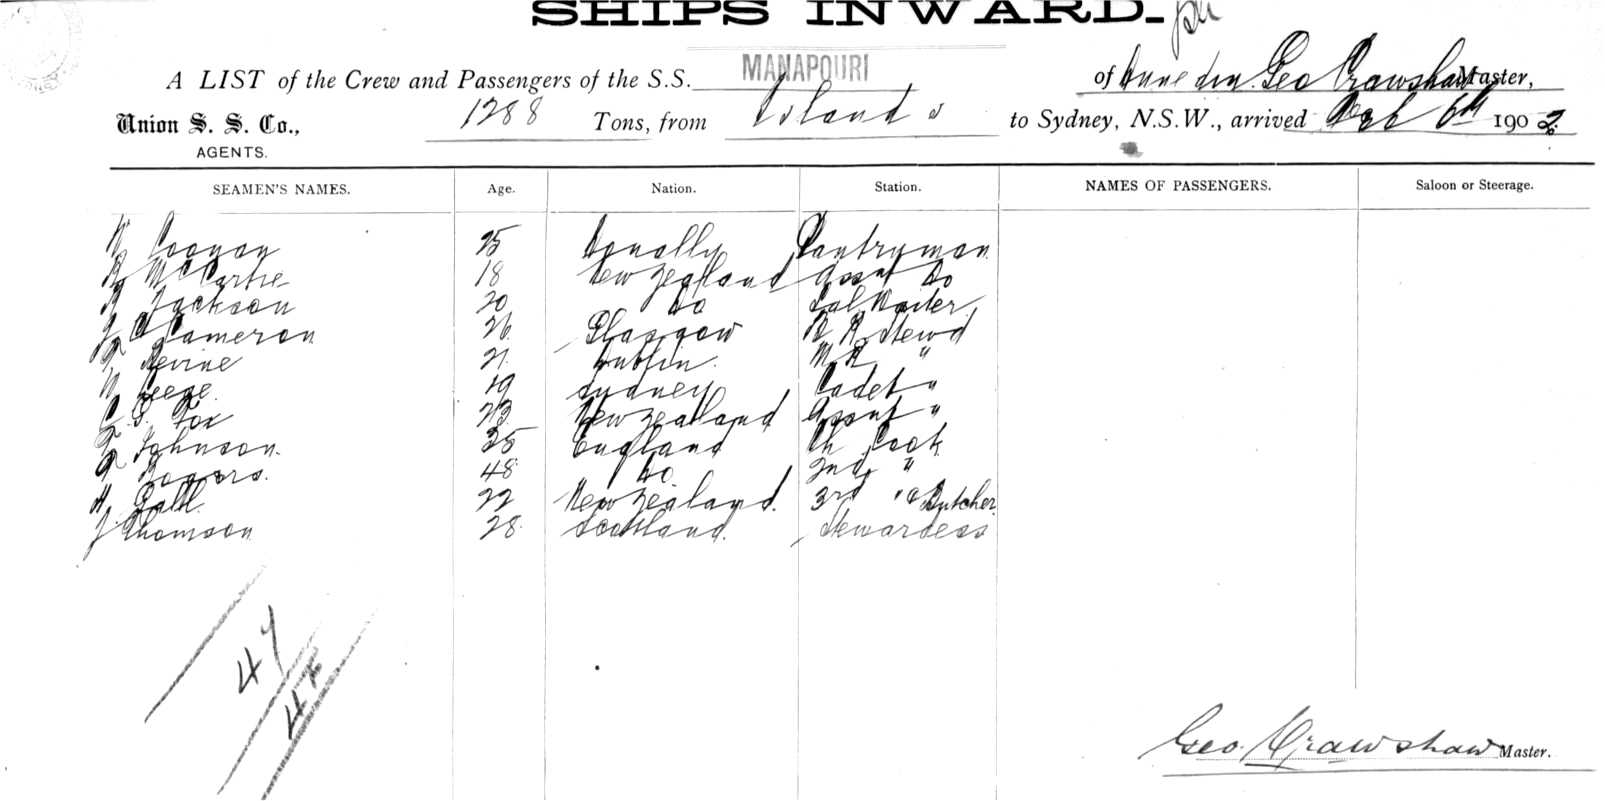 SHIPS INWARD.
A LIST of the Crew and Passengers of the S.S. MANAPOURI of Dunedin Geo Crawshaw Master,
Union S. S. Co., 1288 Tons, from Islands to Sydney, N.S.W., arrived Feb 6th 1902
AGENTS.
SEAMEN'S NAMES. Age. Nation. Station. NAMES OF PASSENGERS. Saloon or Steerage.
Coonan 25 Pantryman
McCartie 18 New Zealand Assnt Do
Jackson 20 Do Sal Waiter
Cameron 26 Glasgow B R Stewd
Devine 21 Dublin M R "
19 Sydney Cadet "
C. S. Fox 23 New Zealand Assnt "
Johnson 35 England Ch Cook
Rogers. 48 Do 2nd "
22 New Zealand. 3rd " & Butcher
J Thomson 28 Scotland. Stewardess
47
Geo. Crawshaw Master.